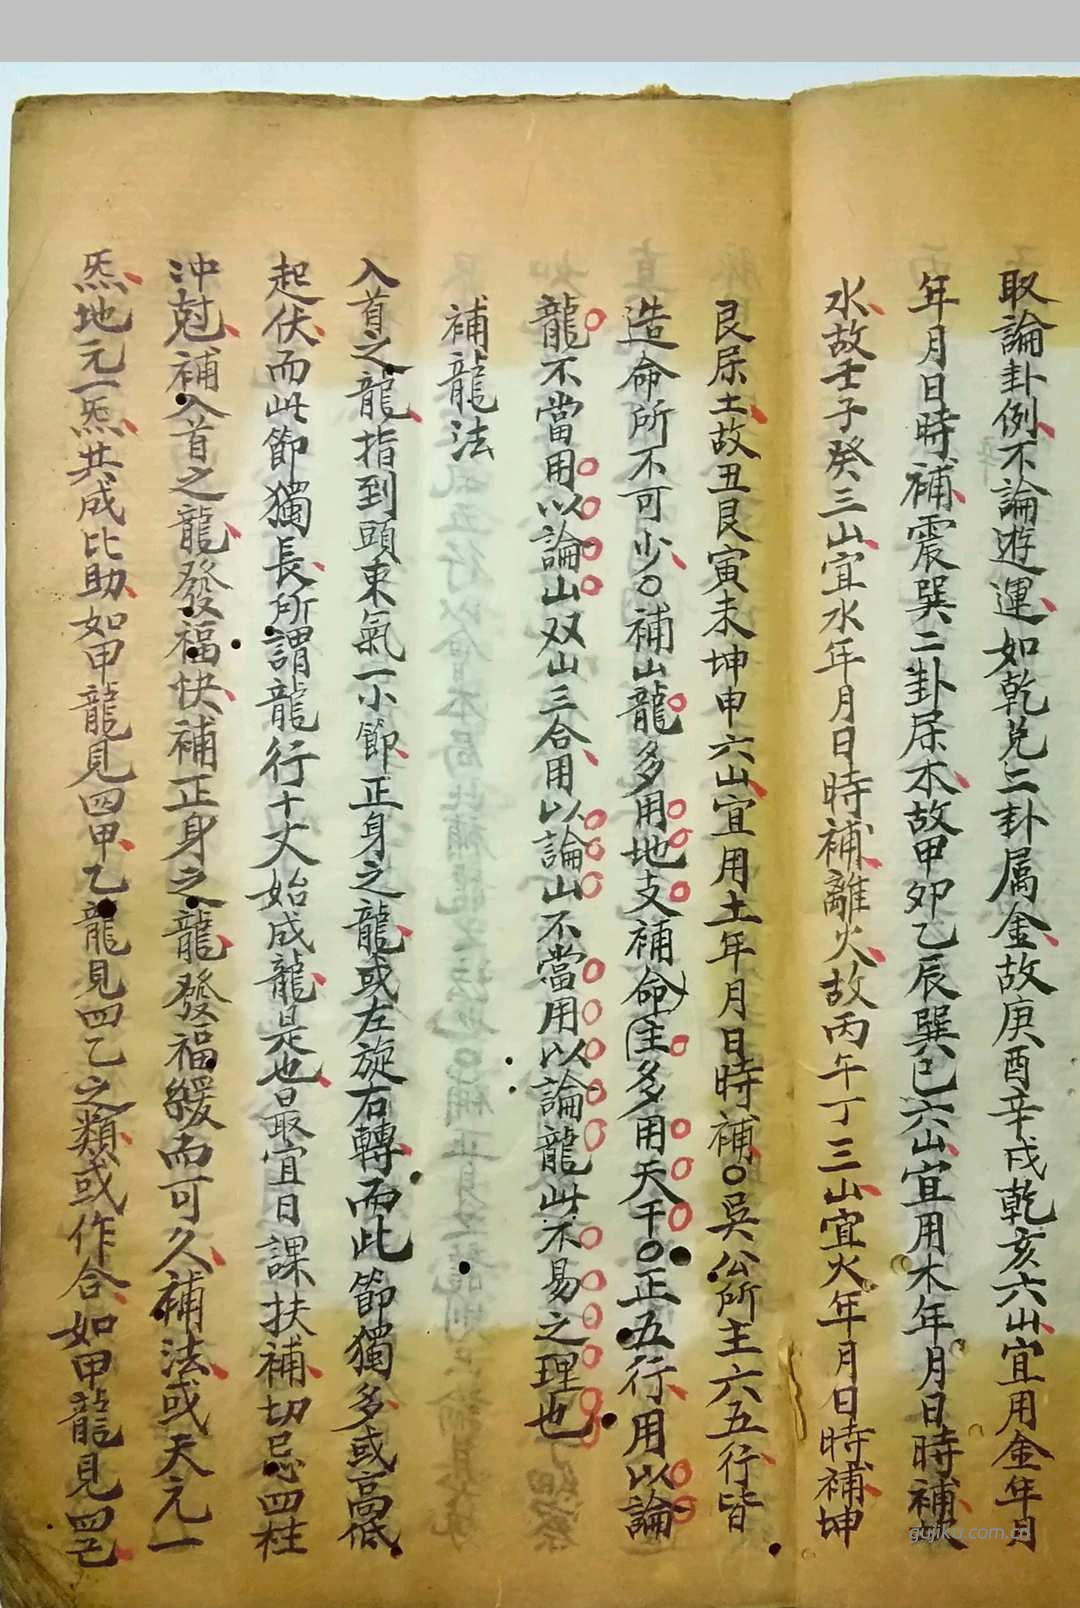 取論卦例不論遊運如乾兌二卦属金故庚酉辛戌乾亥六山宜用金年月
年月日時補震巽二卦居木故甲卯乙辰巽巳六山宜用木年月日時補坎
水故壬子癸三山宜水年月日時補離火故丙午丁三山宜火年月日時補坤
艮居土故丑艮寅未坤申六山宜用土年月日時補○吳公所主六五行皆
造命所不可少○補山龍多用地支補命主多用天干○正五行用以論
龍不當用以論山双山三合用以論山不當用以論龍此不易之理也
補龍法
入首之龍指到頭束氣一小節正身之龍或左旋右轉而此節獨多或高低
起伏而此節獨長所謂龍行十丈始成龍是也最宜日課扶補切忌四柱
沖尅補入首之龍發福快補正身之龍發福緩而可久補法或天元一
炁地元一炁共成比助如甲龍見四甲乙龍見四乙之類或作合如甲龍見四己
gujiku.com.cn